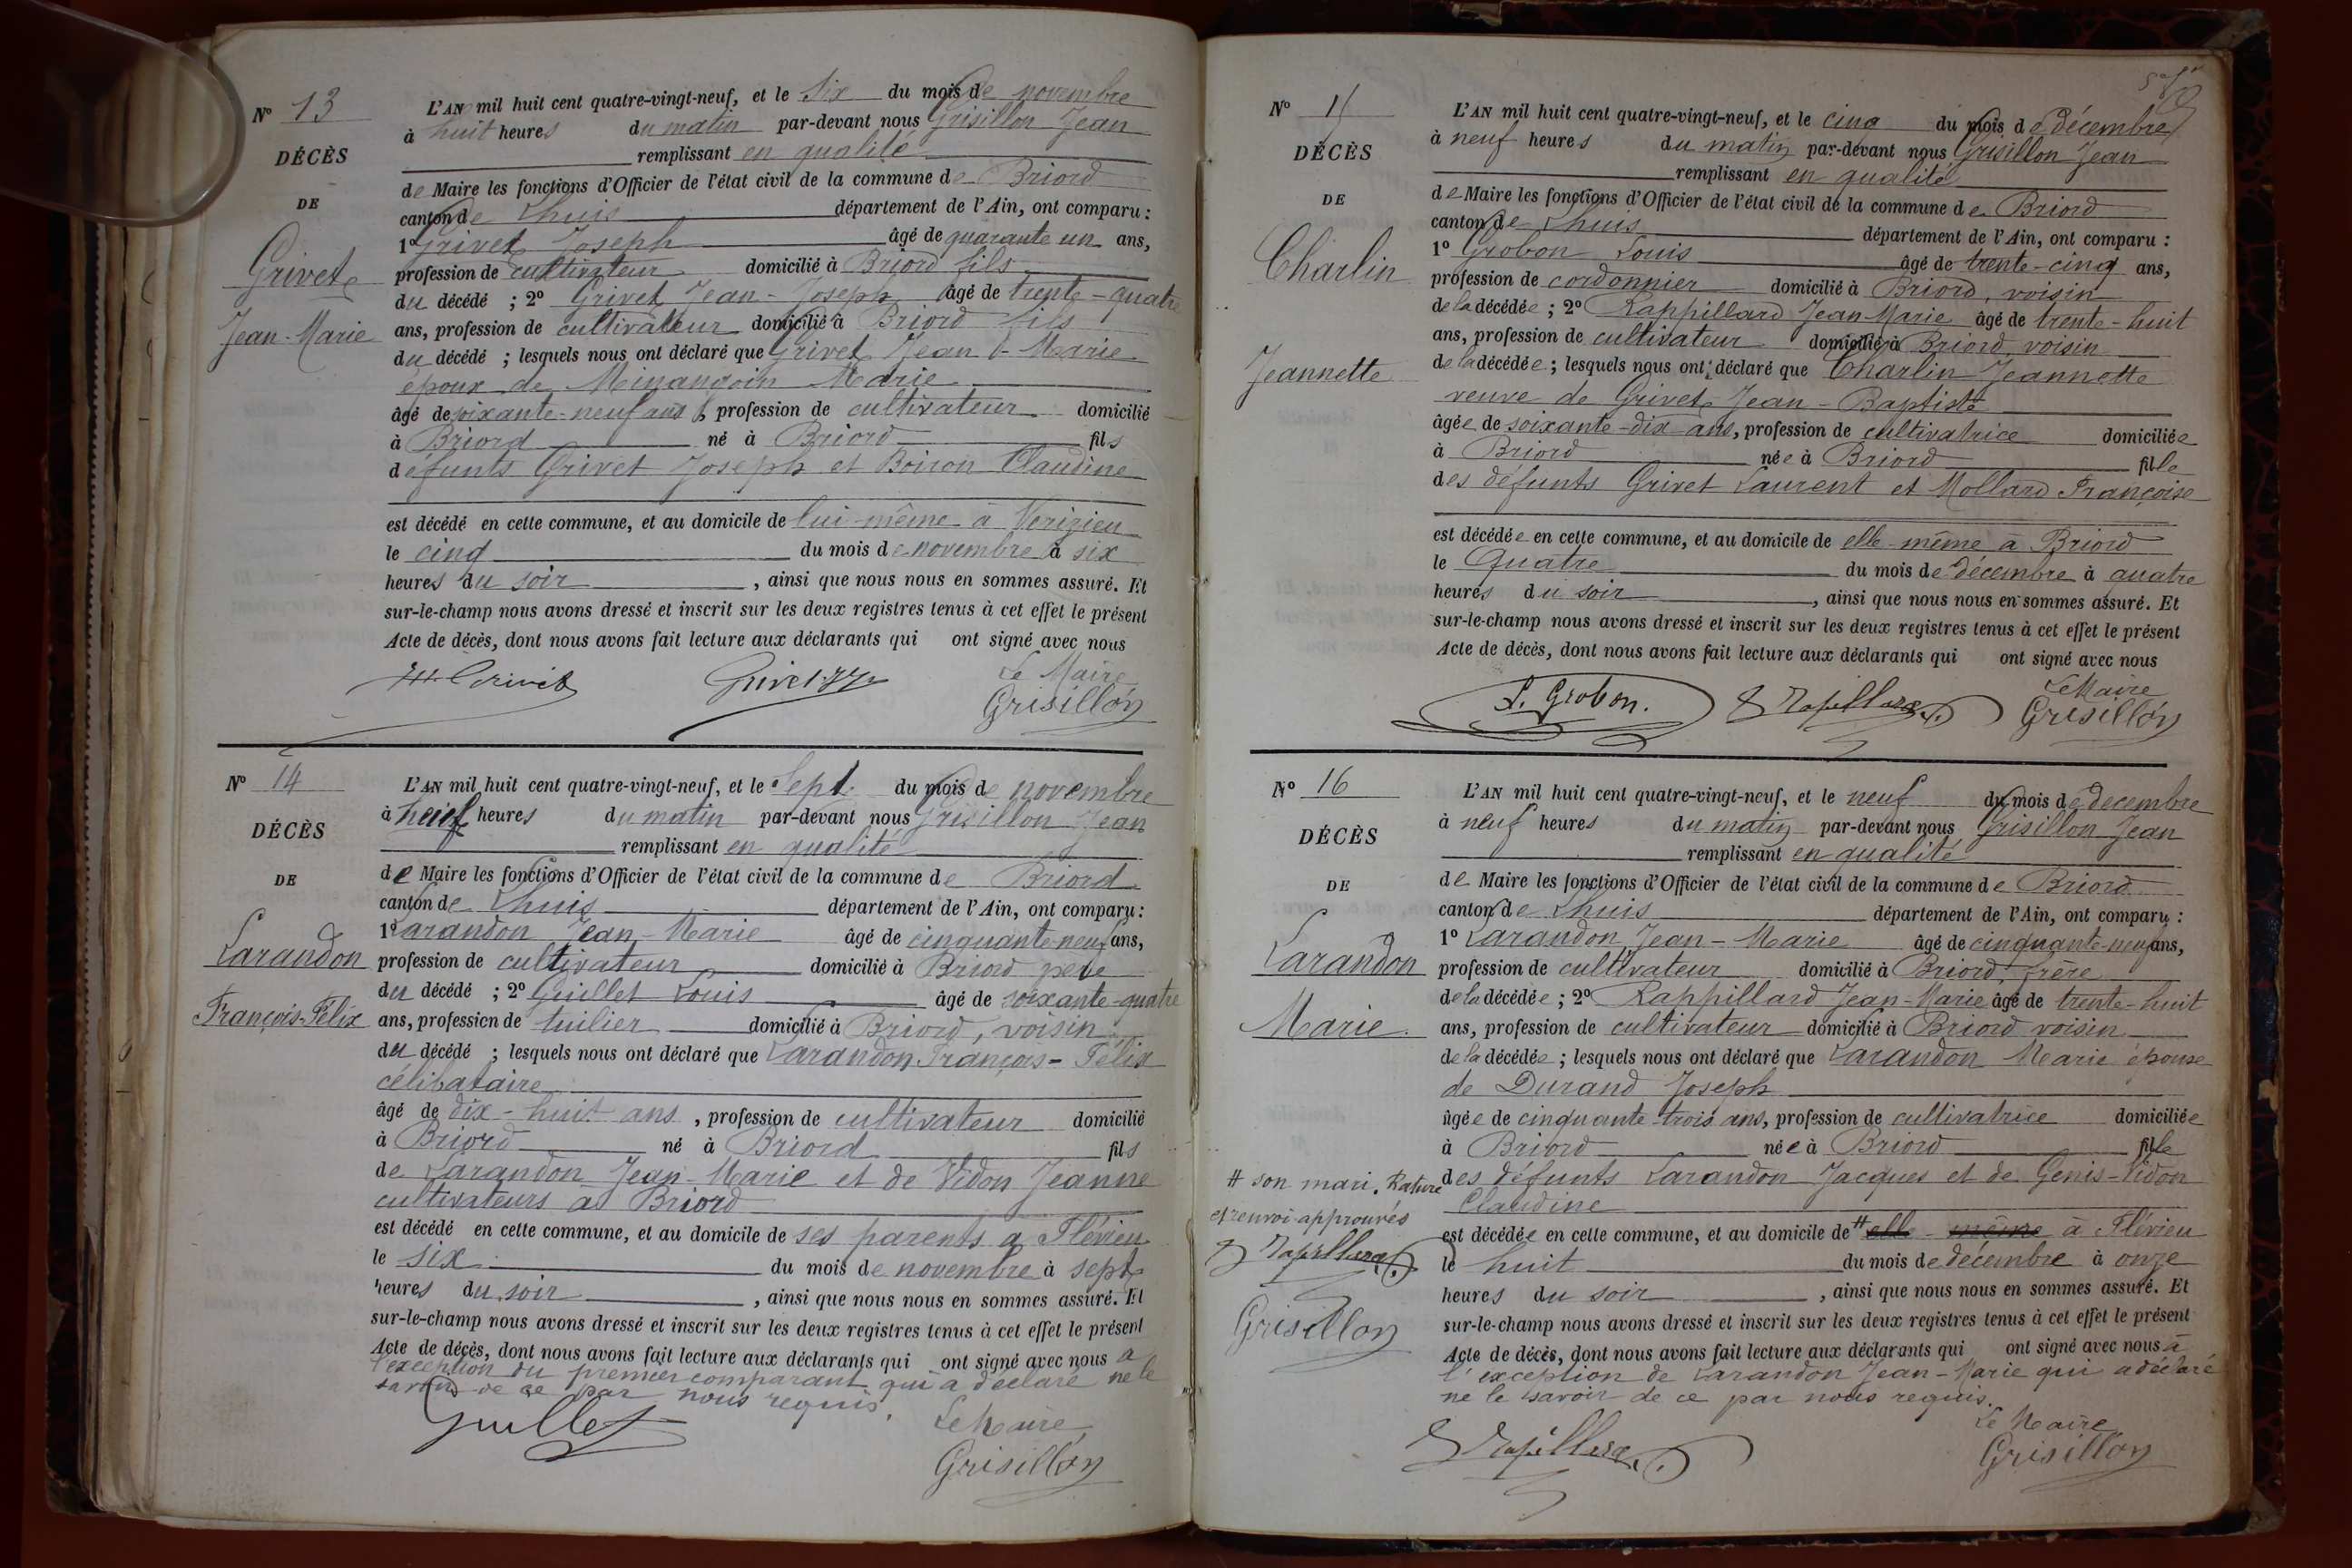 N° 13
DÉCÈS
DE
Grivet
Jean-Marie
L'AN mil huit cent quatre-vingt-neuf, et le Six du mois de novembre
à huit heures du matin par-devant nous Grisillon Jean
remplissant en qualité
de Maire les fonctions d'Officier de l'état civil de la commune de Briord
canton de Lhuis département de l'Ain, ont comparu :
1° Grivet Joseph âgé de quarante un ans,
profession de cultivateur domicilié à Briord fils
du décédé ; 2° Grivet Jean-Joseph âgé de trente-quatre
ans, profession de cultivateur domicilié à Briord fils
du décédé ; lesquels nous ont déclaré que Grivet Jean-Marie
époux de Minangoin Marie
âgé de soixante-neuf ans, profession de cultivateur domicilié
à Briord né à Briord fils
défunts Grivet Joseph et Boiron Claudine
est décédé en cette commune, et au domicile de lui-même à Verizieu
le cinq du mois de novembre à six
heures du soir, ainsi que nous nous en sommes assuré. Et
sur-le-champ nous avons dressé et inscrit sur les deux registres tenus à cet effet le présent
Acte de décès, dont nous avons fait lecture aux déclarants qui ont signé avec nous
Grivet Grivet Le Maire
Grisillon
N° 14
DÉCÈS
DE
Larandon
François-Félix
L'AN mil huit cent quatre-vingt-neuf, et le Sept du mois de novembre
à neuf heures du matin par-devant nous Grisillon Jean
remplissant en qualité
de Maire les fonctions d'Officier de l'état civil de la commune de Briord
canton de Lhuis département de l'Ain, ont comparu :
1° Larandon Jean-Marie âgé de cinquante-neuf ans,
profession de cultivateur domicilié à Briord père
du décédé ; 2° Guillet Louis âgé de soixante-quatre
ans, profession de tuilier domicilié à Briord, voisin
du décédé ; lesquels nous ont déclaré que Larandon François-Félix
célibataire
âgé de dix-huit ans, profession de cultivateur domicilié
à Briord né à Briord fils
de Larandon Jean-Marie et de Vidon Jeanne
cultivateurs à Briord
est décédé en cette commune, et au domicile de ses parents à Flévieu
le six du mois de novembre à sept
heures du soir, ainsi que nous nous en sommes assuré. Et
sur-le-champ nous avons dressé et inscrit sur les deux registres tenus à cet effet le présent
Acte de décès, dont nous avons fait lecture aux déclarants qui ont signé avec nous à
l'exception du premier comparant qui a déclaré ne le
savoir de ce par nous requis.
Guillet Le Maire
Grisillon
N° 15
DÉCÈS
DE
Charlin
Jeannette
L'AN mil huit cent quatre-vingt-neuf, et le cinq du mois de décembre
à neuf heures du matin par-devant nous Grisillon Jean
remplissant en qualité
de Maire les fonctions d'Officier de l'état civil de la commune de Briord
canton de Lhuis département de l'Ain, ont comparu :
1° Grobon Louis âgé de trente-cinq ans,
profession de cordonnier domicilié à Briord, voisin
de la décédée ; 2° Rappillard Jean-Marie âgé de trente-huit
ans, profession de cultivateur domicilié à Briord voisin
de la décédée ; lesquels nous ont déclaré que Charlin Jeannette
veuve de Grivet Jean-Baptiste
âgée de soixante-dix ans, profession de cultivatrice domiciliée
à Briord née à Briord fille
des défunts Grivet Laurent et Mollard Françoise
est décédée en cette commune, et au domicile de elle-même à Briord
le Quatre du mois de décembre à quatre
heures du soir, ainsi que nous nous en sommes assuré. Et
sur-le-champ nous avons dressé et inscrit sur les deux registres tenus à cet effet le présent
Acte de décès, dont nous avons fait lecture aux déclarants qui ont signé avec nous
L. Grobon. Rapillard Le Maire
Grisillon
N° 16
DÉCÈS
DE
Larandon
Marie
L'AN mil huit cent quatre-vingt-neuf, et le neuf du mois de décembre
à neuf heures du matin par-devant nous Grisillon Jean
remplissant en qualité
de Maire les fonctions d'Officier de l'état civil de la commune de Briord
canton de Lhuis département de l'Ain, ont comparu :
1° Larandon Jean-Marie âgé de cinquante-neuf ans,
profession de cultivateur domicilié à Briord frère
de la décédée ; 2° Rappillard Jean-Marie âgé de trente-huit
ans, profession de cultivateur domicilié à Briord voisin
de la décédée ; lesquels nous ont déclaré que Larandon Marie épouse
de Durand Joseph
âgée de cinquante-trois ans, profession de cultivatrice domiciliée
à Briord née à Briord fille
des défunts Larandon Jacques et de Genis-Vidon
Claudine
est décédée en cette commune, et au domicile de # elle-même à Flévieu
le huit du mois de décembre à onze
heures du soir, ainsi que nous nous en sommes assuré. Et
sur-le-champ nous avons dressé et inscrit sur les deux registres tenus à cet effet le présent
Acte de décès, dont nous avons fait lecture aux déclarants qui ont signé avec nous à
l'exception de Larandon Jean-Marie qui a déclaré
ne le savoir de ce par nous requis.
# son mari. Rature
et renvoi approuvés
Rapillard
Grisillon
Rapillard Le Maire
Grisillon